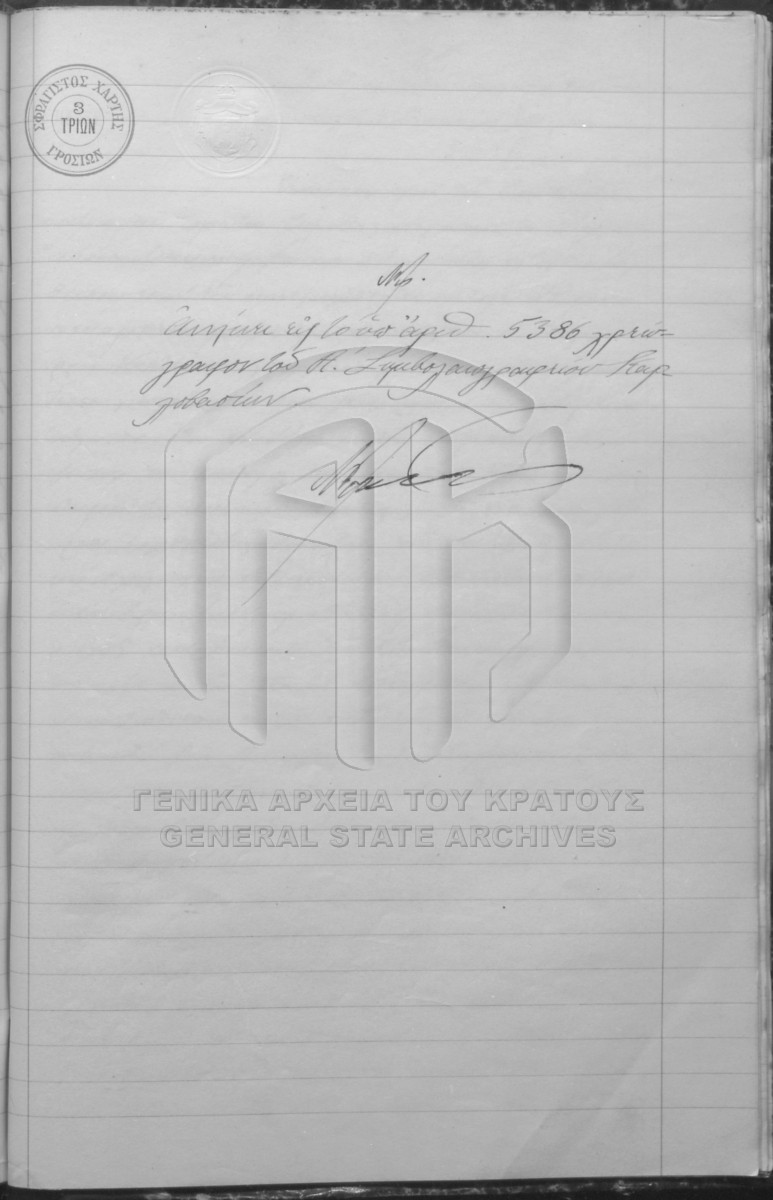 ΣΦΡΑΓΙΣΤΟΣ ΧΑΡΤΗΣ
3
ΤΡΙΩΝ
ΓΡΟΣΙΩΝ
Ἀνήκει εἰς τὸ ὑπ' ἀριθ. 5386 χρεώ-
γραφον τοῦ Α. Συμβολαιογραφείου Καρ-
λοβασίων.
ΓΕΝΙΚΑ ΑΡΧΕΙΑ ΤΟΥ ΚΡΑΤΟΥΣ
GENERAL STATE ARCHIVES